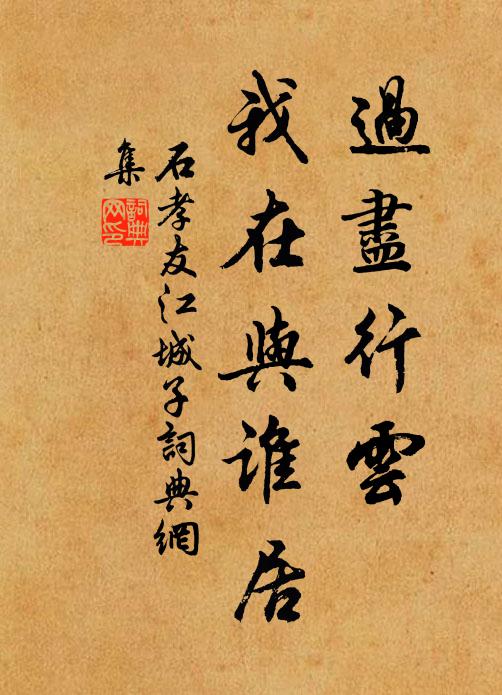 過盡行雲
我在與誰居
石孝友江城子詞典網
集
詞典網印